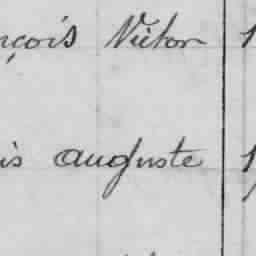 nçois Victor 1
is auguste 1